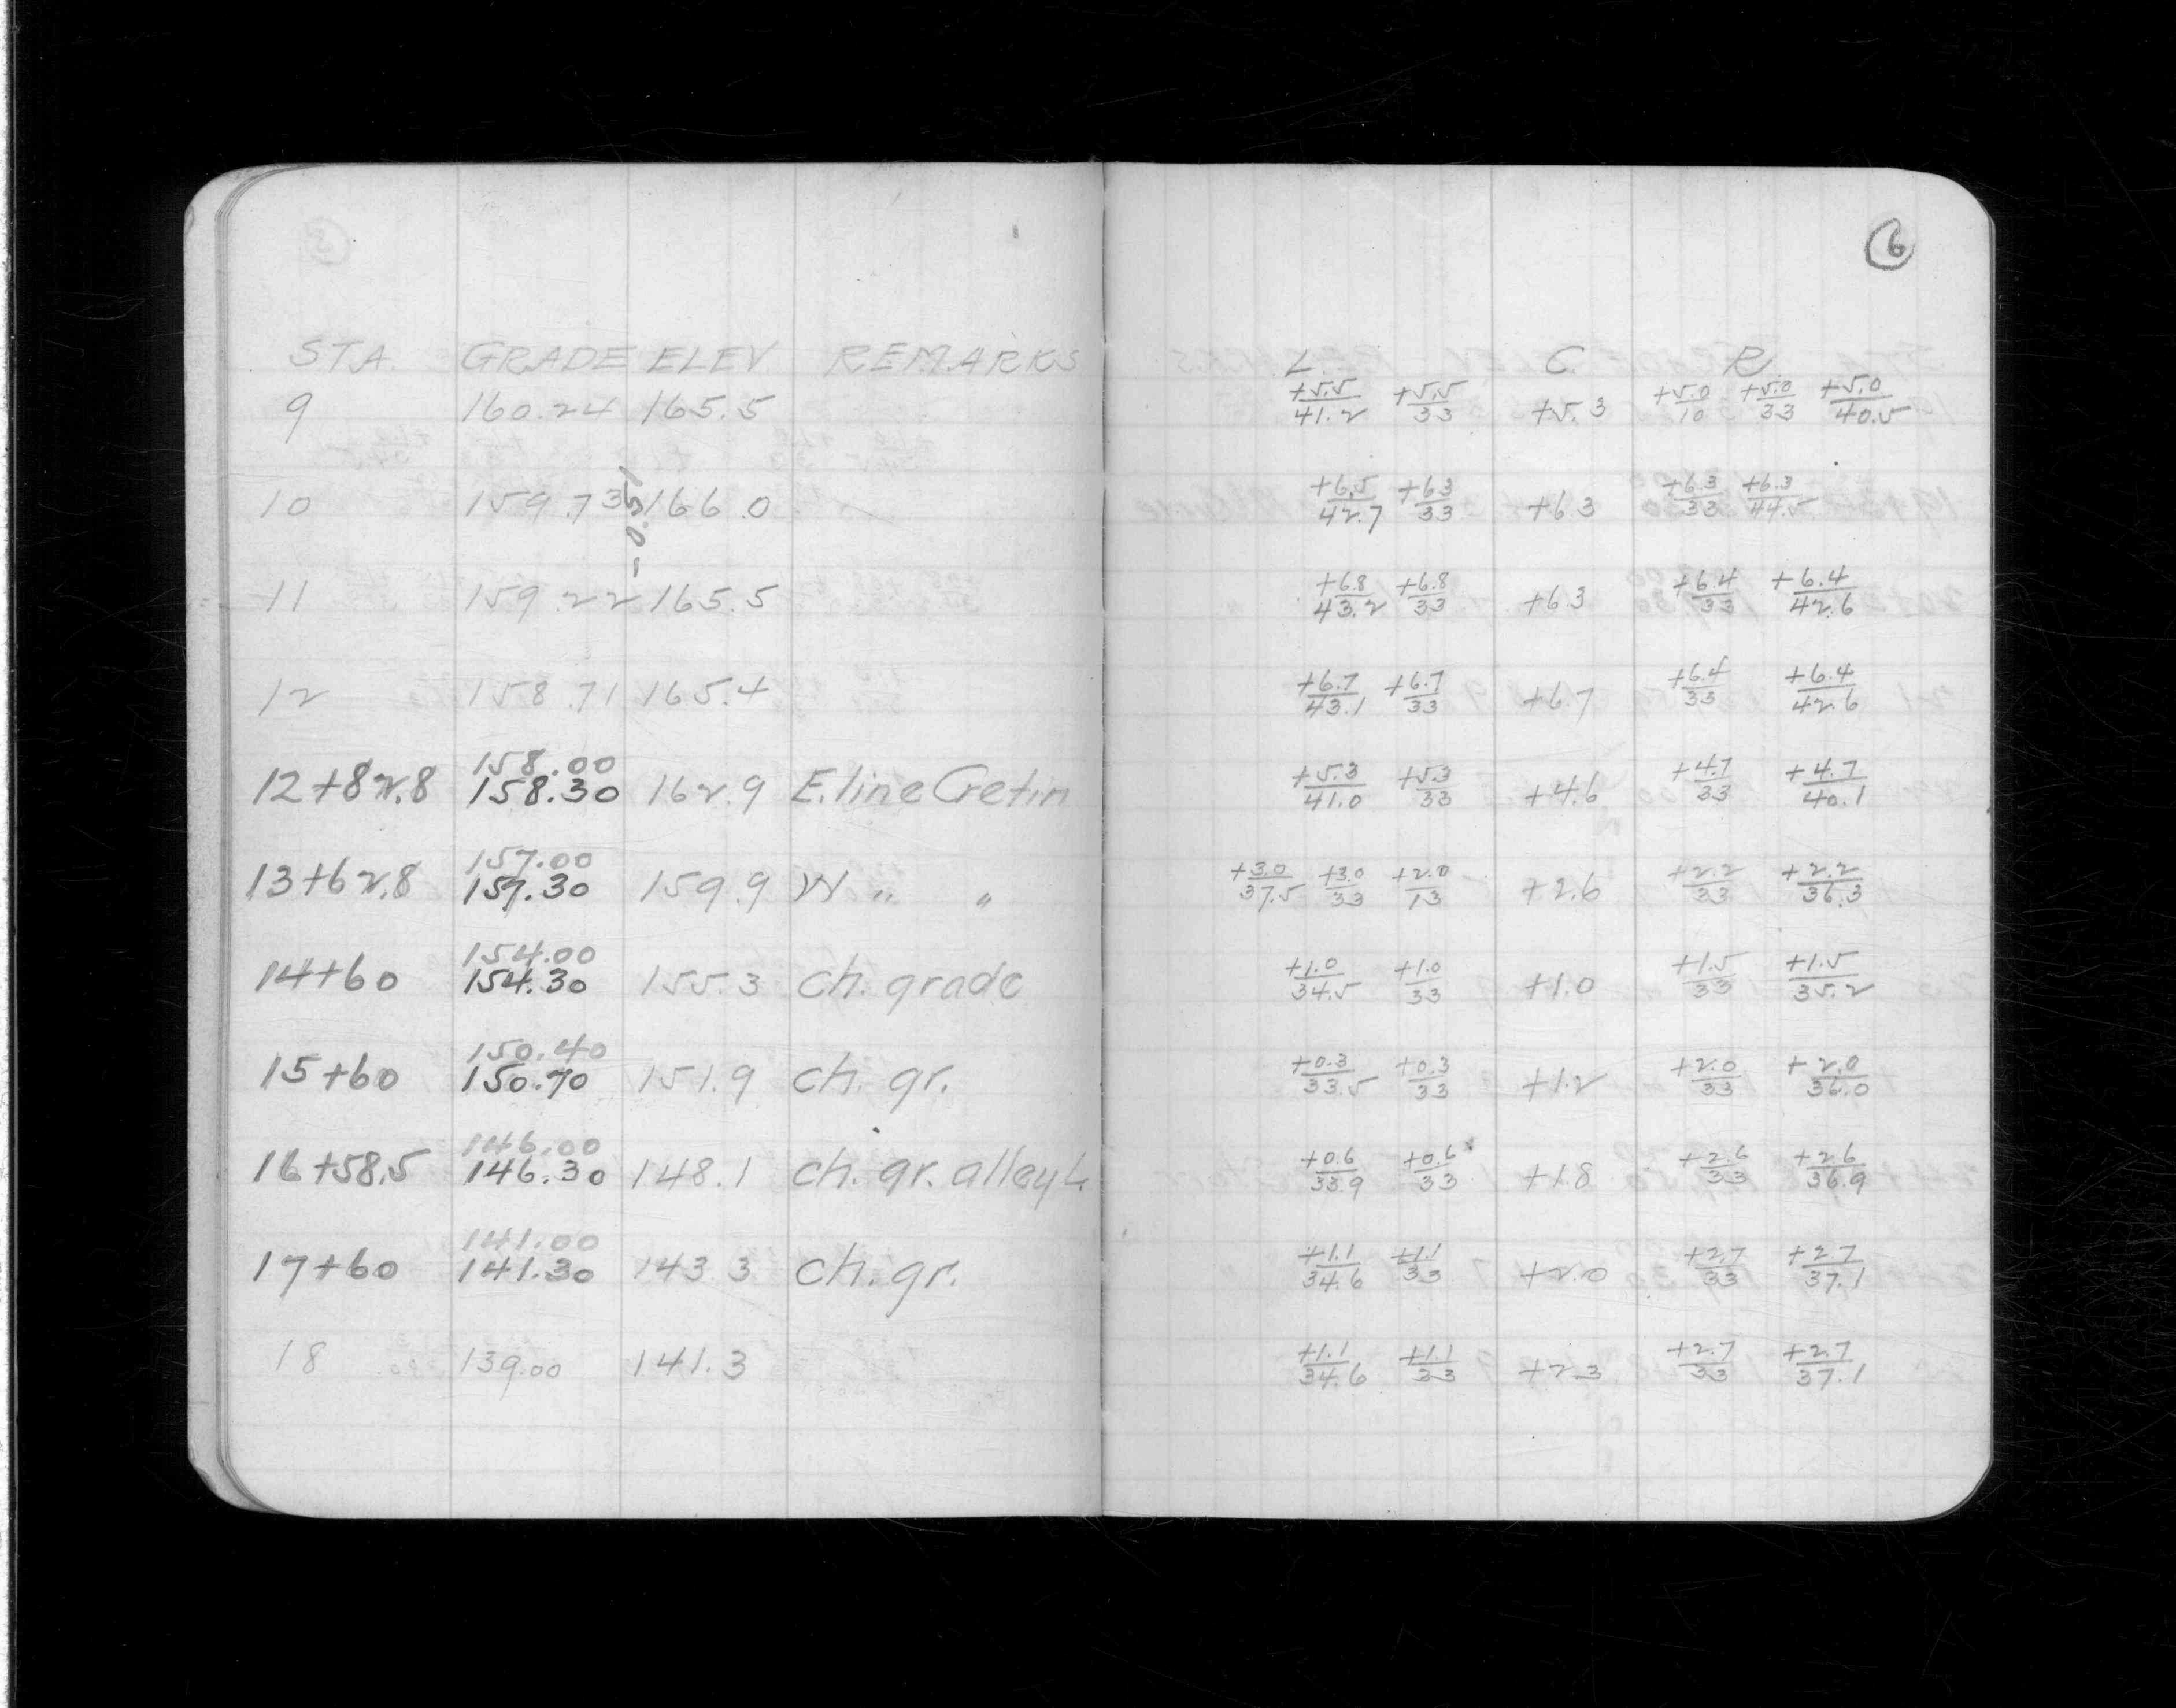 6
STA. GRADE ELEV. REMARKS L. C. R.
9 160.24 165.5 +5.5/41.2 +5.5/33 +5.3 +5.0/10 +5.0/33 +5.0/40.5
10 159.73 166.0 +6.5/42.7 +6.3/33 +6.3 +6.3/33 +6.3/44.5
-0.51
11 159.22 165.5 +6.8/43.2 +6.8/33 +6.3 +6.4/33 +6.4/42.6
12 158.71 165.4 +6.7/43.1 +6.7/33 +6.7 +6.4/33 +6.4/42.6
158.00
12+82.8 158.30 162.9 E. line Cretin +5.3/41.0 +5.3/33 +4.6 +4.7/33 +4.7/40.1
157.00
13+62.8 157.30 159.9 W " " +3.0/37.5 +3.0/33 +2.0/13 +2.6 +2.2/33 +2.2/36.3
154.00
14+60 154.30 155.3 ch. grade +1.0/34.5 +1.0/33 +1.0 +1.5/33 +1.5/35.2
150.40
15+60 150.70 151.9 ch. gr. +0.3/33.5 +0.3/33 +1.2 +2.0/33 +2.0/36.0
146.00
16+58.5 146.30 148.1 ch. gr. alley L. +0.6/33.9 +0.6/33 +1.8 +2.6/33 +2.6/36.9
141.00
17+60 141.30 143.3 ch. gr. +1.1/34.6 +1.1/33 +2.0 +2.7/33 +2.7/37.1
18 139.00 141.3 +1.1/34.6 +1.1/33 +2.3 +2.7/33 +2.7/37.1